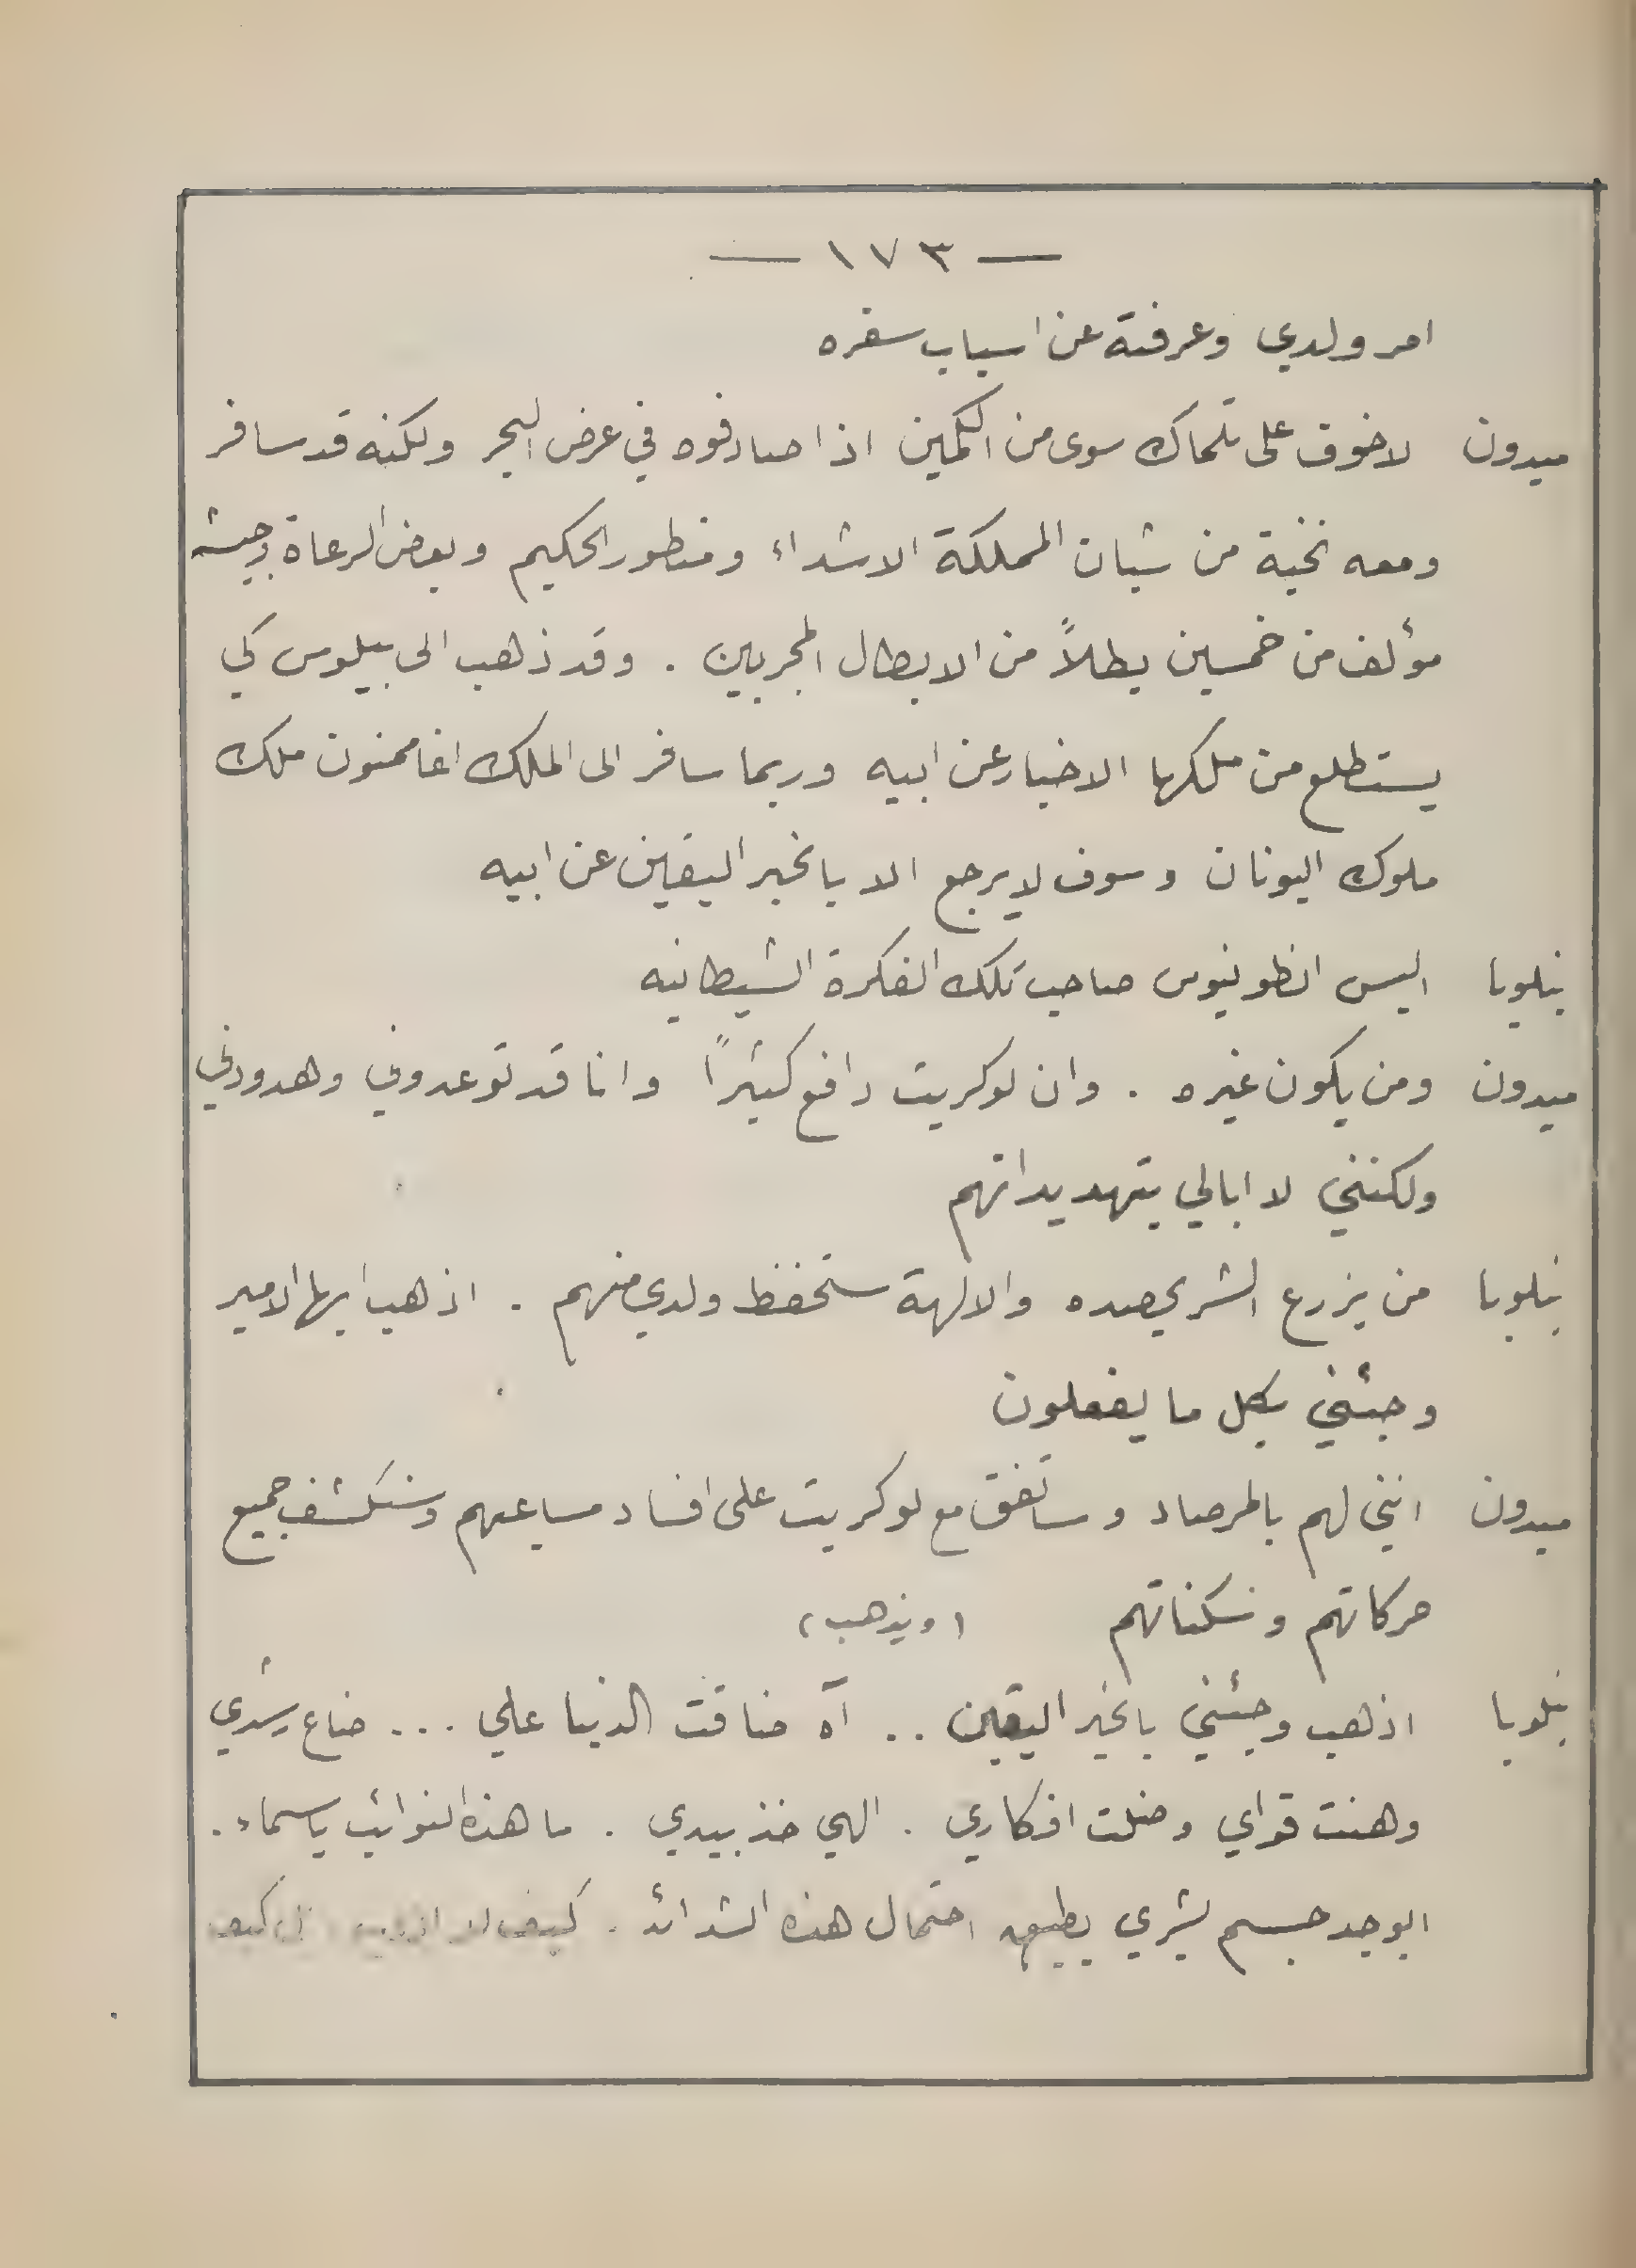 — ١٧٣ —
امر ولدي وعرفته عن اسباب سفره
ميدون لاخوف على تلماك سوى من الكمين اذا صادفوه في عرض البحر ولكنه قد سافر
ومعه نخبة من شبان المملكة الاشداء ومنطور الحكيم وبعض الرعاة وجيشه
مؤلف من خمسين بطلاً من الابطال المجربين . وقد ذهب الى بيلوس كي
يستطلع من ملكها الاخبار عن ابيه وربما سافر الى الملك اغاممنون ملك
ملوك اليونان وسوف لا يرجع الا بالخبر اليقين عن ابيه
بنلوبا اليس انطونيوس صاحب تلك الفكرة الشيطانيه
ميدون ومن يكون غيره . وان لوكريت دافع كثيراً وانا قد توعدوني وهددوني
ولكنني لا ابالي بتهديداتهم
بنلوبا من يزرع الشر يحصده والالهة ستحفظ ولدي منهم . اذهب ايها الامير
وجئني بكل ما يفعلون
ميدون انني لهم بالمرصاد وساتفق مع لوكريت على افساد مساعيهم وسنكشف جميع
حركاتهم وسكناتهم (ويذهب)
بنلوبا اذهب وجئني بالخبر اليقين .. آه ضاقت الدنيا علي ... ضاع رشدي
وهنت قواي وضلت افكاري . الهي خذ بيدي . ما هذه النوائب ياسماء .
ايوجد جسم بشري يطيق احتمال هذه الشدائد . كيف لا كيف